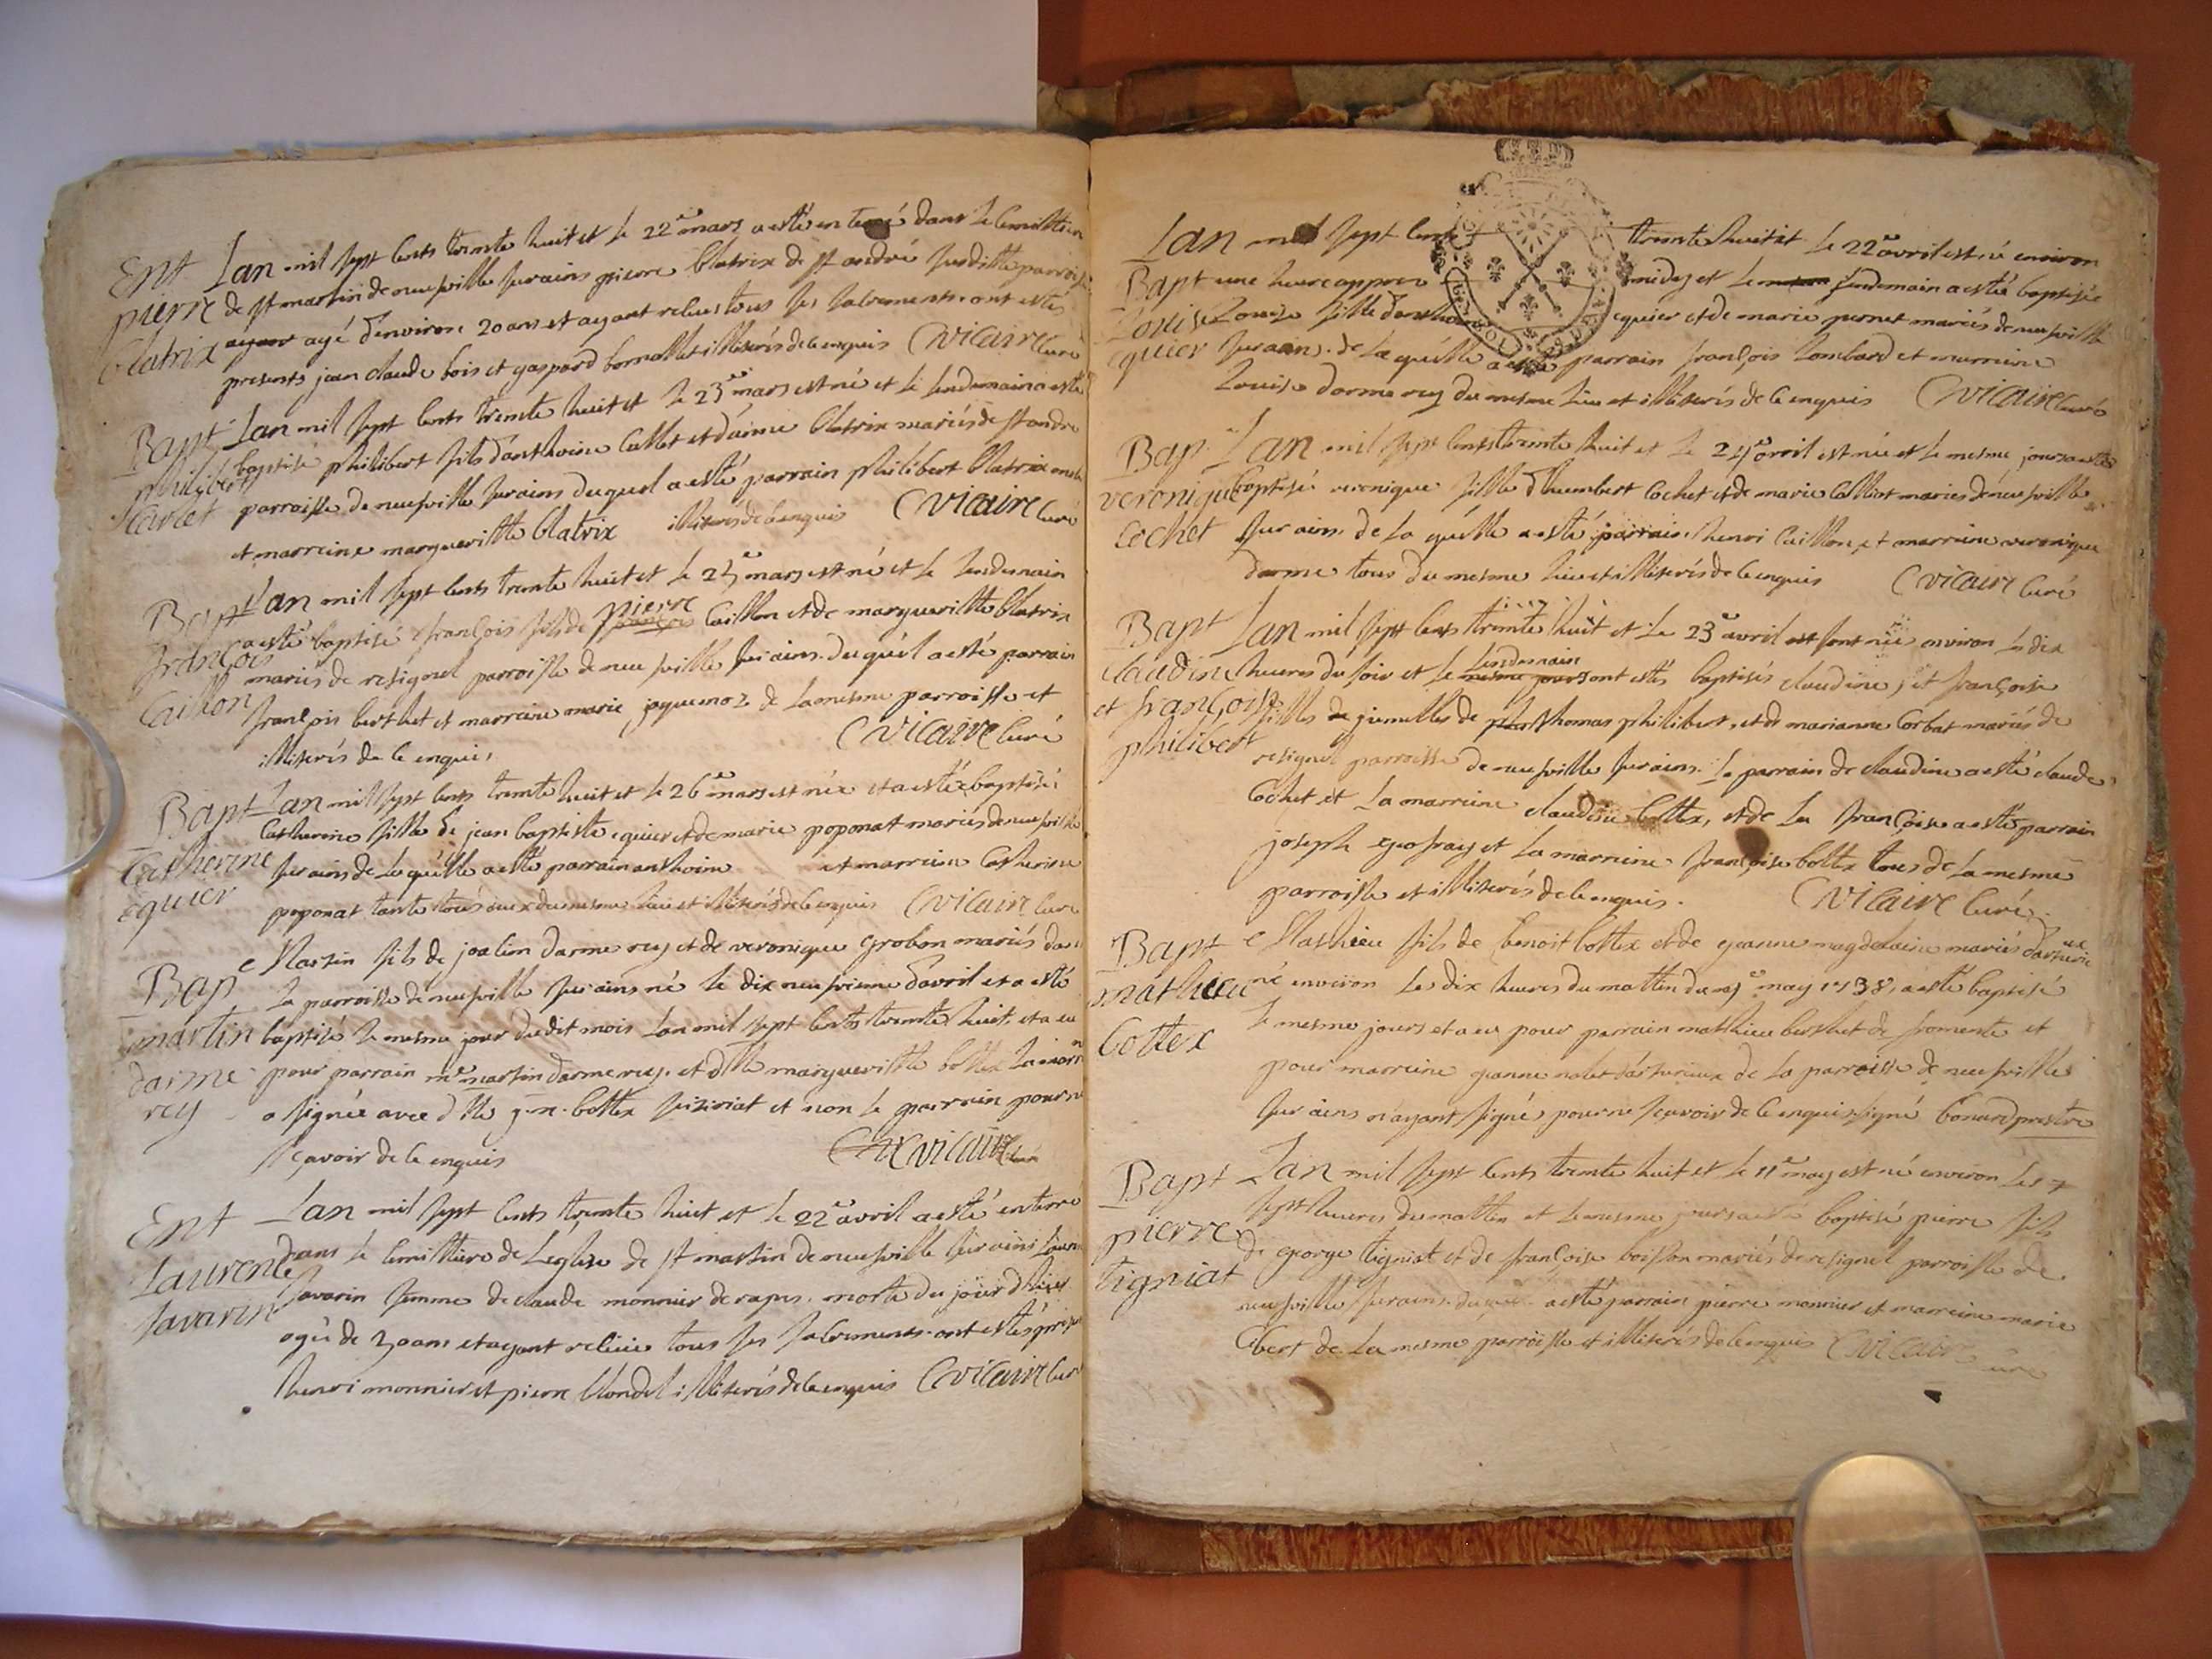 Ent
pierre
blatrix
Lan mil sept cents trente huit et le 22e mars a esté enterré dans le cemittiere
de st martin de neufville sur ains pierre blatrix de st andré susditte parroisse
agé d'environ 20 ans et ayant reçus tous ses sacrements ont estés
presents jean claude bois et gaspard illiterés de ce enquis Cvicaire curé
Bapt
philibert
callet
Lan mil sept cents trente huit et le 23e mars est né et le lendemain a esté
baptisé philibert fils d'anthoine callet et d'aimé blatrix mariés de st andré
parroisse de neufville sur ains duquel a esté parrain philibert blatrix
et marreine margueritte blatrix illiterés de ce enquis Cvicaire curé
Bapt
françois
Caillon
Lan mil sept cents trente huit et le 25e mars est né et le lendemain
a esté baptisé françois fils de pierre Caillon et de margueritte blatrix
mariés de resignel parroisse de neufville sur ains duquel a esté parrain
françois berthet et marreine marie joquenoz de la mesme parroisse et
illiterés de ce enquis Cvicaire curé
Bapt
Catherine
equier
Lan mil sept cents trente huit et le 26e mars est née et a esté baptisé
Catherine fille de jean baptiste equier et de marie poponat mariés de neufville
sur ains de la quelle a esté parrain anthoine et marreine Catherine
poponat tante tous deux du mesme lieu et illiterés de ce enquis Cvicaire curé
Bap
martin
darme
rey
Martin fils de joachim darme rey et de veronique grobon mariés de
la parroisse de neufville sur ains né le dix neufvieme d'avril et a esté
baptisé le mesme jour dudit mois Lan mil sept cents trente huit, et a eu
pour parrain me martin darme rey et dlle margueritte bottex la marr
a signée avec dlle bottex et non le parrain pour ne
sçavoir de ce enquis Cvicaire curé
Ent
Laurence
Savarin
Lan mil sept cents trente huit et le 22e avril a esté enterré
dans le cemittiere de Leglise de st martin de neufville sur ains
Savarin femme de claude monnier de rapes morte du jour d'hier
agée de 30 ans et ayant reçue tous ses sacrements ont estés
henri monnier et pierre blondel illiterés de ce enquis Cvicaire curé
Bapt
Louise
equier
Lan mil sept cents trente huit et le 22e avril est né environ
une heure appres midy et le lendemain a esté baptisée
Louise fille d'anthoine equier et de marie pernet mariés de neufville
sur ains. de la quelle a esté parrain françois Lombard et marreine
Louise darme rey du mesme lieu et illiterés de ce enquis Cvicaire curé
Bap
veronique
Cochet
Lan mil sept cents trente huit et le 24e avril est née et le mesme jours a esté
baptisé veronique fille d'humbert Cochet et de marie mariés de neufville
sur ains. de la quelle a esté parrain henri Caillon et marreine veronique
darme tous du mesme lieu et illiterés de ce enquis Cvicaire curé
Bapt
claudine
et françoise
philibert
Lan mil sept cents trente huit et le 23e avril est sont née environ les dix
heures du soir et le lendemain mesme jours ont estés baptisés claudine, et françoise
filles de jumelles de thomas philibert, et de marianne Corbat mariés de
resignel parroisse de neufville sur ains. Le parrain de claudine a esté claude
Cochet et La marreine claudine bottex, et de la françoise a esté parrain
joseph geofray et La marreine françoise bottex tous de La mesme
parroisse et illiterés de ce enquis. Cvicaire curé.
Bapt
mathieu
bottex
Mathieu fils de benoit bottex et de jeanne magdelaine mariés
né environ Les dix heures du mattin du may 1738, a esté baptisé
le mesme jours et a eu pour parrain mathieu berthet de fromente et
pour marreine jeanne de La parroisse de neufville
sur ains n'ayant signé pour ne sçavoir de ce enquis, signé bonard prestre
Bapt
pierre
tigniat
Lan mil sept cents trente huit et le 11e may est né environ Les 7
sept heures du mattin et le mesme jours a esté baptisé pierre fils
de george tigniat et de françoise boisson mariés de resignel parroisse de
neufville sur ains. duquel a esté parrain pierre monnier et marreine marie
Cibert de La mesme parroisse et illiterés de ce enquis Cvicaire curé